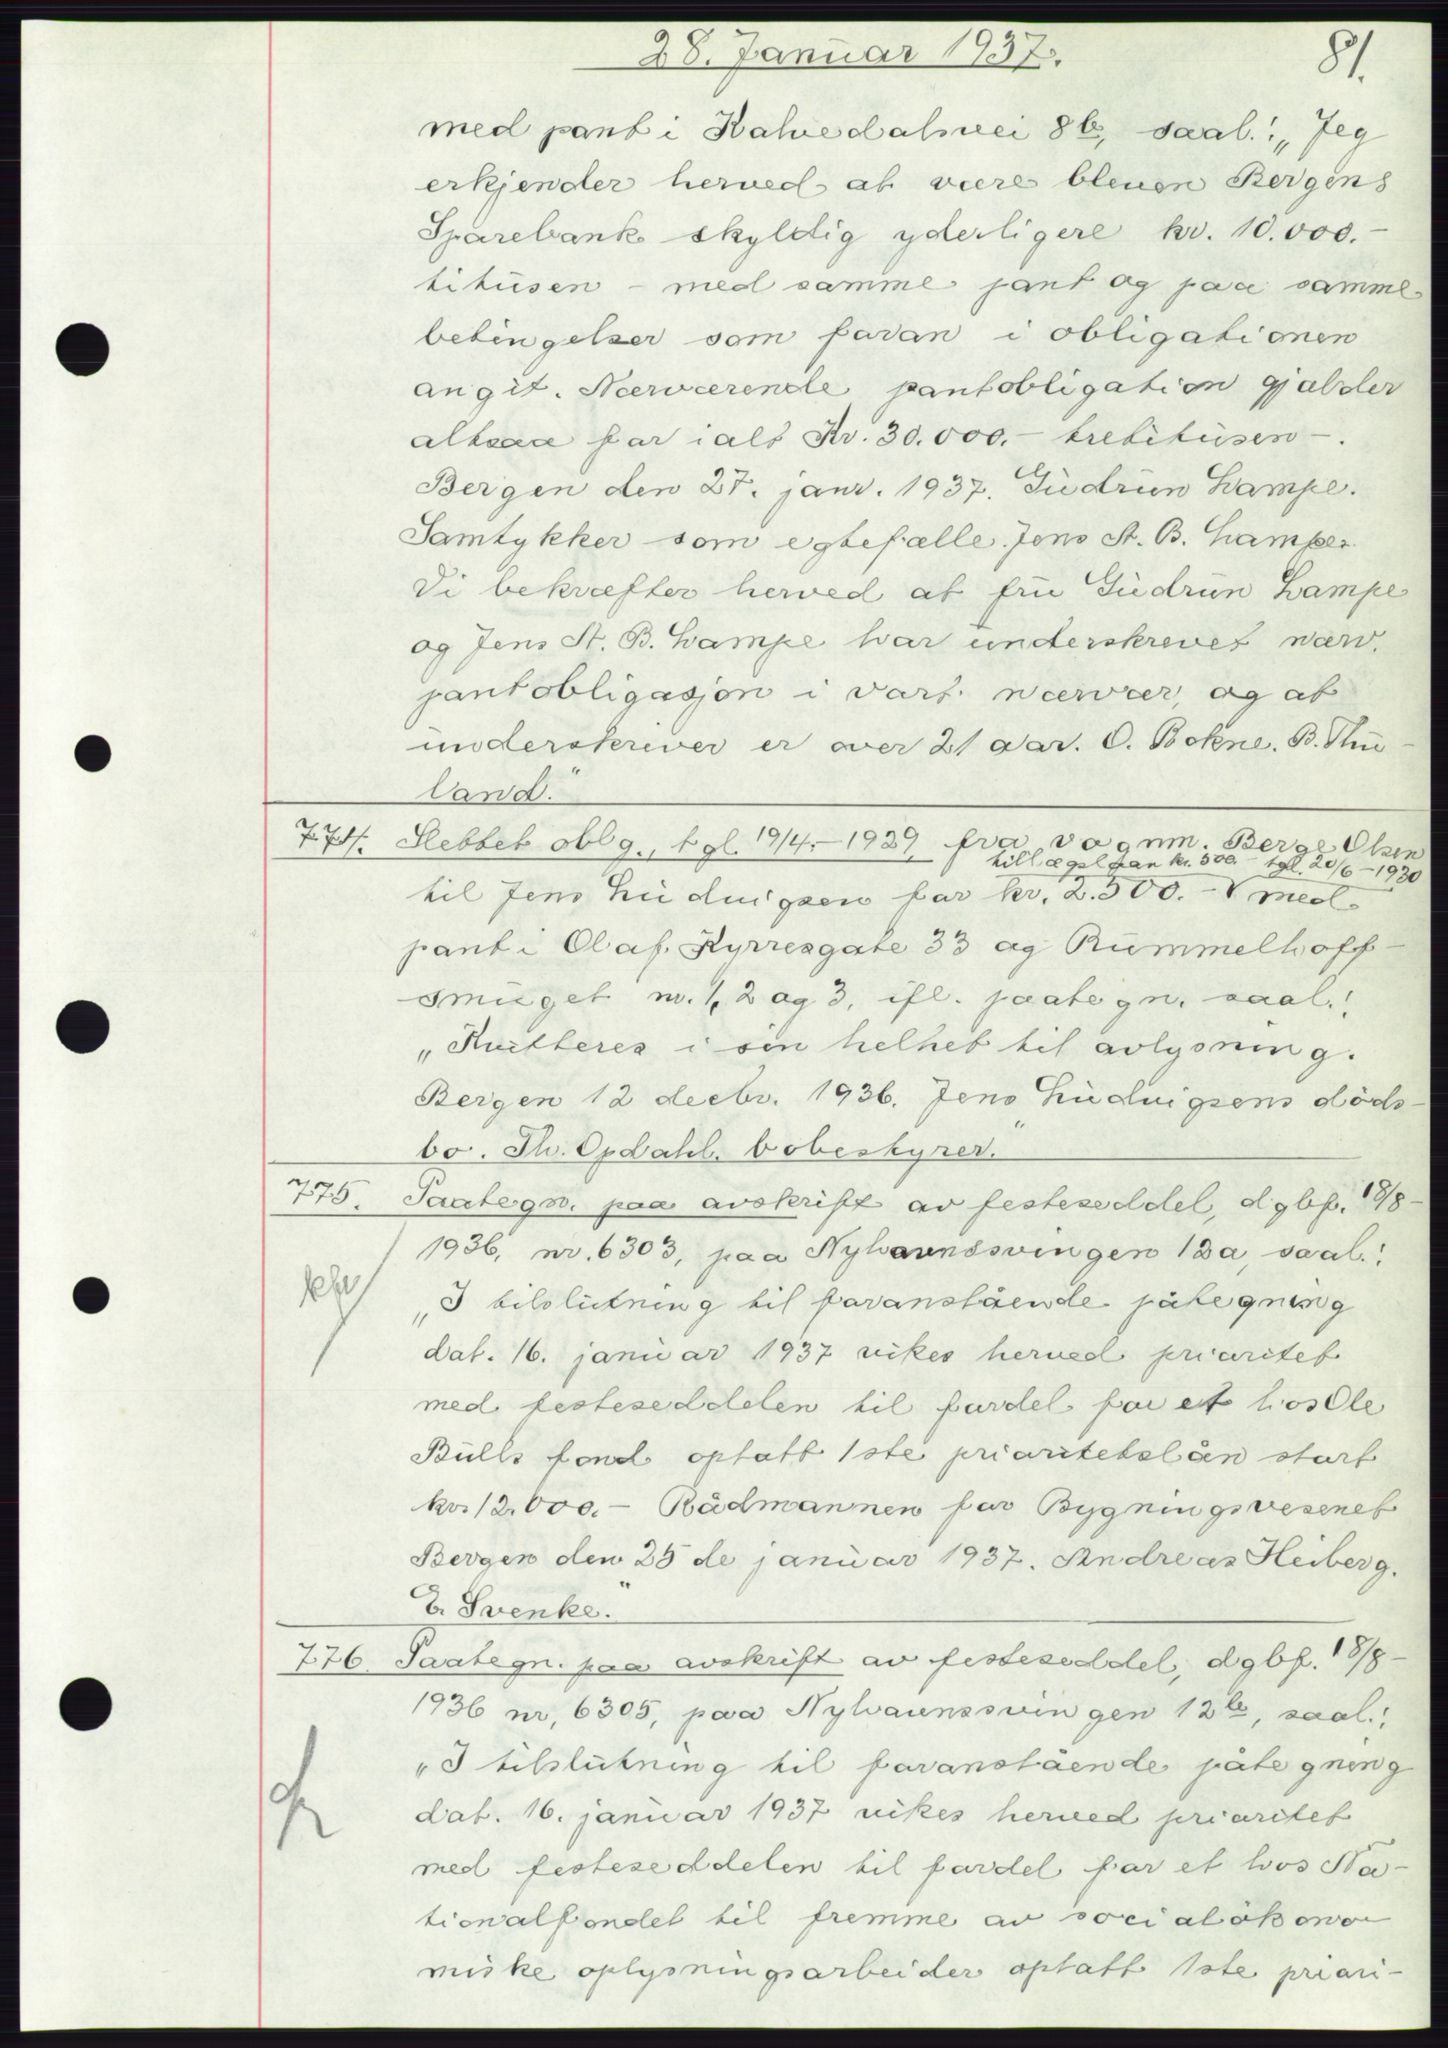 28. Januar 1937.
81.
med pant i Kalvedalsvei 8b, saal.: „Jeg
erkjender herved at være bleven Bergens
Sparebank skyldig yderligere kr. 10.000.-
titusen - med samme pant og paa samme
betingelser som foran i obligationen
angit. Nærværende pantobligation gjælder
altsaa for ialt Kr. 30.000.- tretitusen -.
Bergen den 27. janr. 1937. Gudrun Lampe.
Samtykker som egtefælle. Jens St. B. Lampe.
Vi bekræfter herved at fru Gudrun Lampe
og Jens St. B. Lampe har underskrevet nærv.
pantobligasjon i vart nærvær, og at
underskriver er over 21 aar. O. Bokne. B. Thu-
land."
774. Slettet oblg., tgl. 19/4.-1929 fra vognm. Berge Olsen
tillægslaan kr. 500.- tgl. 20/6-1930
til Jens Ludvigsen for kr. 2.500.- V med
pant i Olaf Kyrresgate 33 og Rummelhoff-
smuget nr. 1, 2 og 3, ifl. paategn. saal.:
„Kvitteres i sin helhet til avlysning.
Bergen 12 decbr. 1936. Jens Ludvigsens döds-
bo. Th. Opdahl. bobestyrer."
775. Paategn. paa avskrift av festeseddel, dgbf. 18/8-
1936, nr. 6303, paa Nyhavnssvingen 12a, saal.:
„I tilslutning til foranstående påtegning
dat. 16. januar 1937 vikes herved prioritet
med festeseddelen til fordel for et hos Ole
Bulls fond optatt 1ste prioritetslån stort
kr. 12.000.- Rådmannen for Bygningsvesenet
Bergen den 25de januar 1937. Andreas Heiberg.
E. Svenke."
776. Paategn. paa avskrift av festeseddel, dgbf. 18/8-
1936 nr, 6305, paa Nyhavnssvingen 12b, saal.:
„I tilslutning til foranstående påtegning
dat. 16. januar 1937 vikes herved prioritet
med festeseddelen til fordel for et hos Na-
tionalfondet til fremme av socialökono
miske oplysningsarbeider optatt 1ste priori-